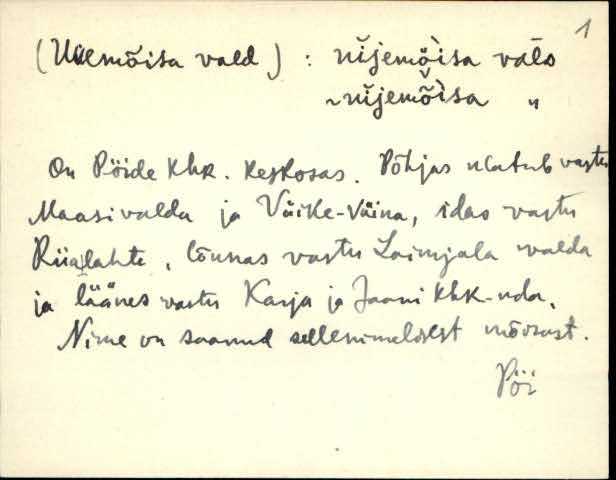 1
(Uuemõisa vald) : ũĩjemõ̀isa vàĺɒ
~ũĩjemõ̀isa "
On Pöide khk. keskosas. Põhjas ulatub vastu
Maasi valda ja Väike-Väina, idas vastu
Riialahte, lõunas vastu Laimjala valda
ja läänes vastu Karja ja Jaani khk-nda.
Nime on saanud sellenimelisest mõisast.
Pöi